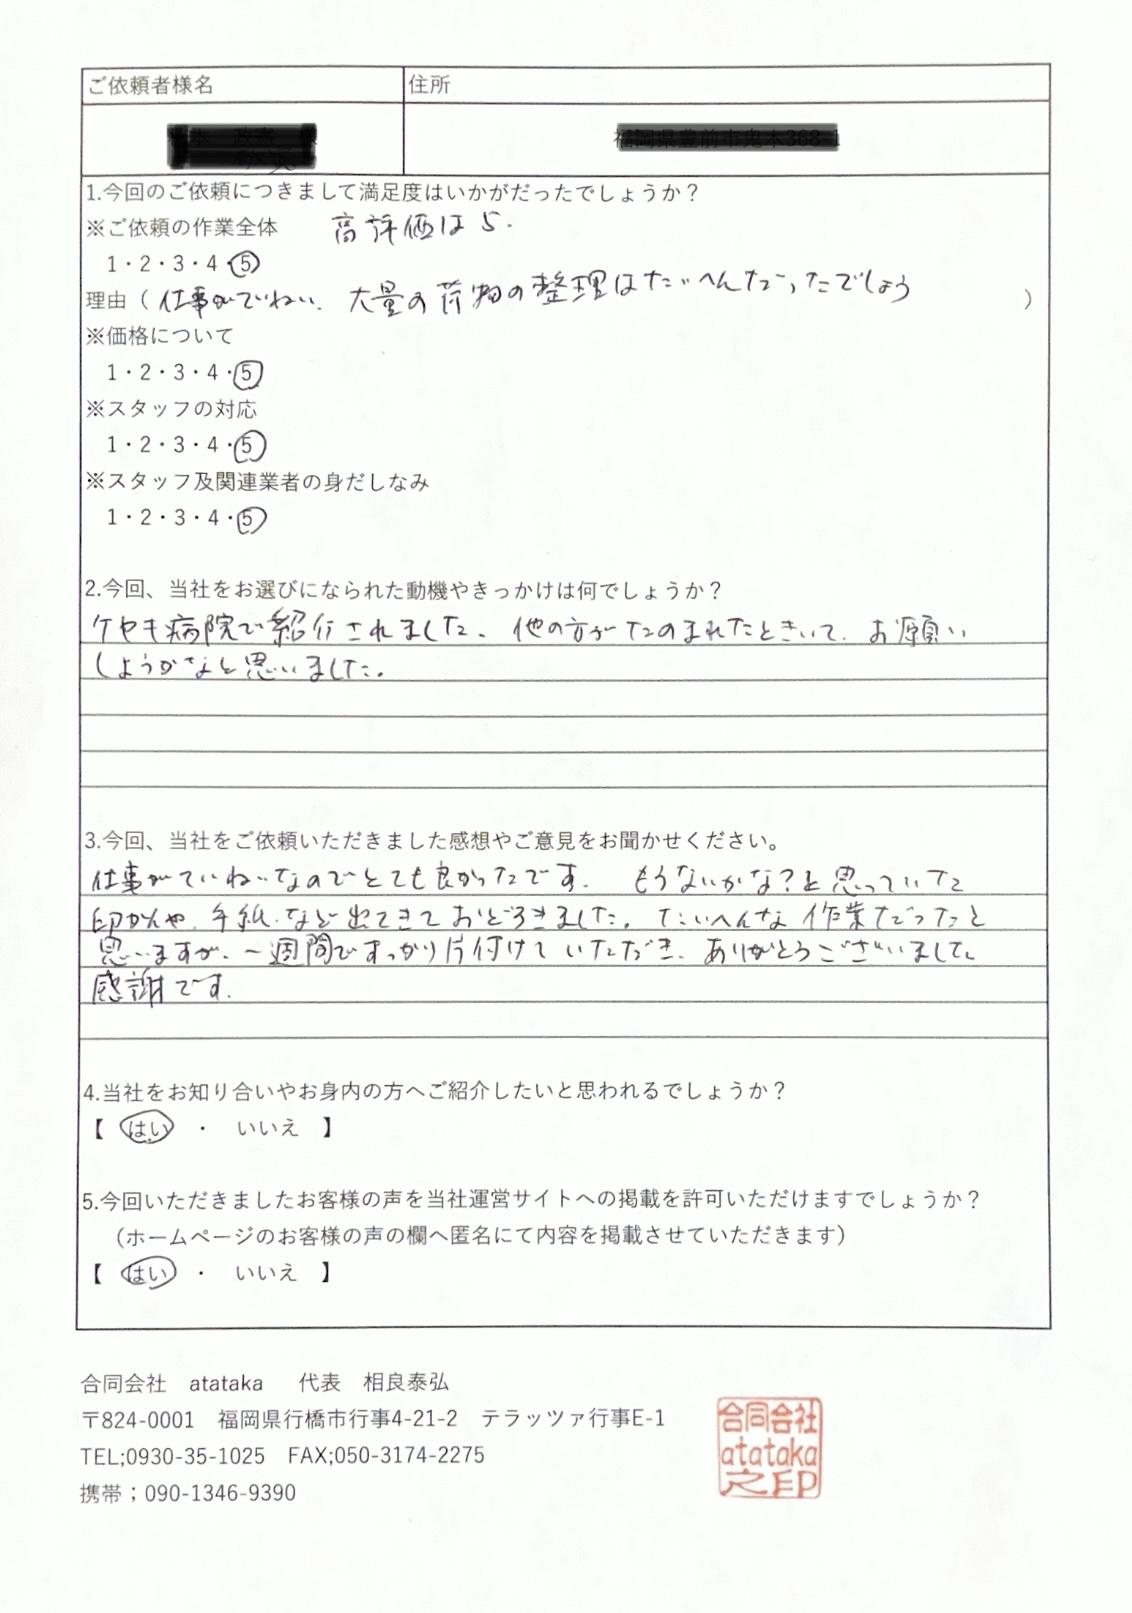 ご依頼者様名 住所
1.今回のご依頼につきまして満足度はいかがだったでしょうか？
※ご依頼の作業全体 高評価は5.
1・2・3・4・5
理由（ 仕事がていねい. 大量の荷物の整理はたいへんだったでしょう ）
※価格について
1・2・3・4・5
※スタッフの対応
1・2・3・4・5
※スタッフ及関連業者の身だしなみ
1・2・3・4・5
2.今回、当社をお選びになられた動機やきっかけは何でしょうか？
ケヤキ病院で紹介されました、他の方がたのまれたときいて、お願い
しようかなと思いました。
3.今回、当社をご依頼いただきました感想やご意見をお聞かせください。
仕事がていねいなのでとても良かったです. もうないかな？と思っていた
印かんや、手紙、など出てきておどろきました。たいへんな作業だったと
思いますが、一週間ですっかり片付けていただき、ありがとうございました。
感謝です.
4.当社をお知り合いやお身内の方へご紹介したいと思われるでしょうか？
【 はい ・ いいえ 】
5.今回いただきましたお客様の声を当社運営サイトへの掲載を許可いただけますでしょうか？
（ホームページのお客様の声の欄へ匿名にて内容を掲載させていただきます）
【 はい ・ いいえ 】
合同会社 atataka 代表 相良泰弘
〒824-0001 福岡県行橋市行事4-21-2 テラッツァ行事E-1
TEL;0930-35-1025 FAX;050-3174-2275
携帯；090-1346-9390
合同会社
atataka
之印